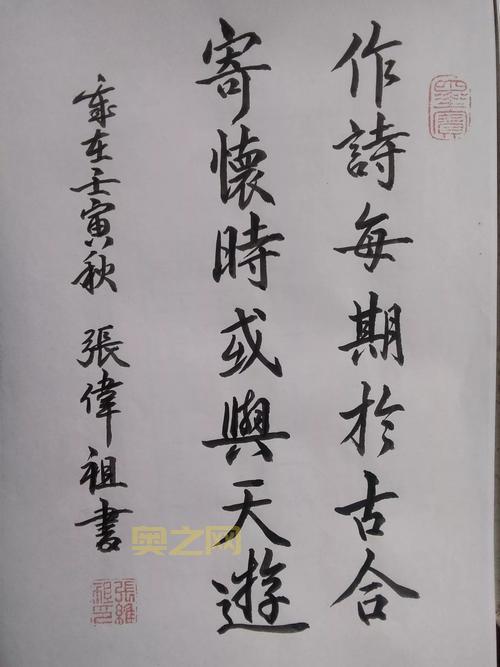 墨寶
作詩每期於古合
寄懷時或與天遊
歲在壬寅秋 張偉祖書
張維祖印
奥之网